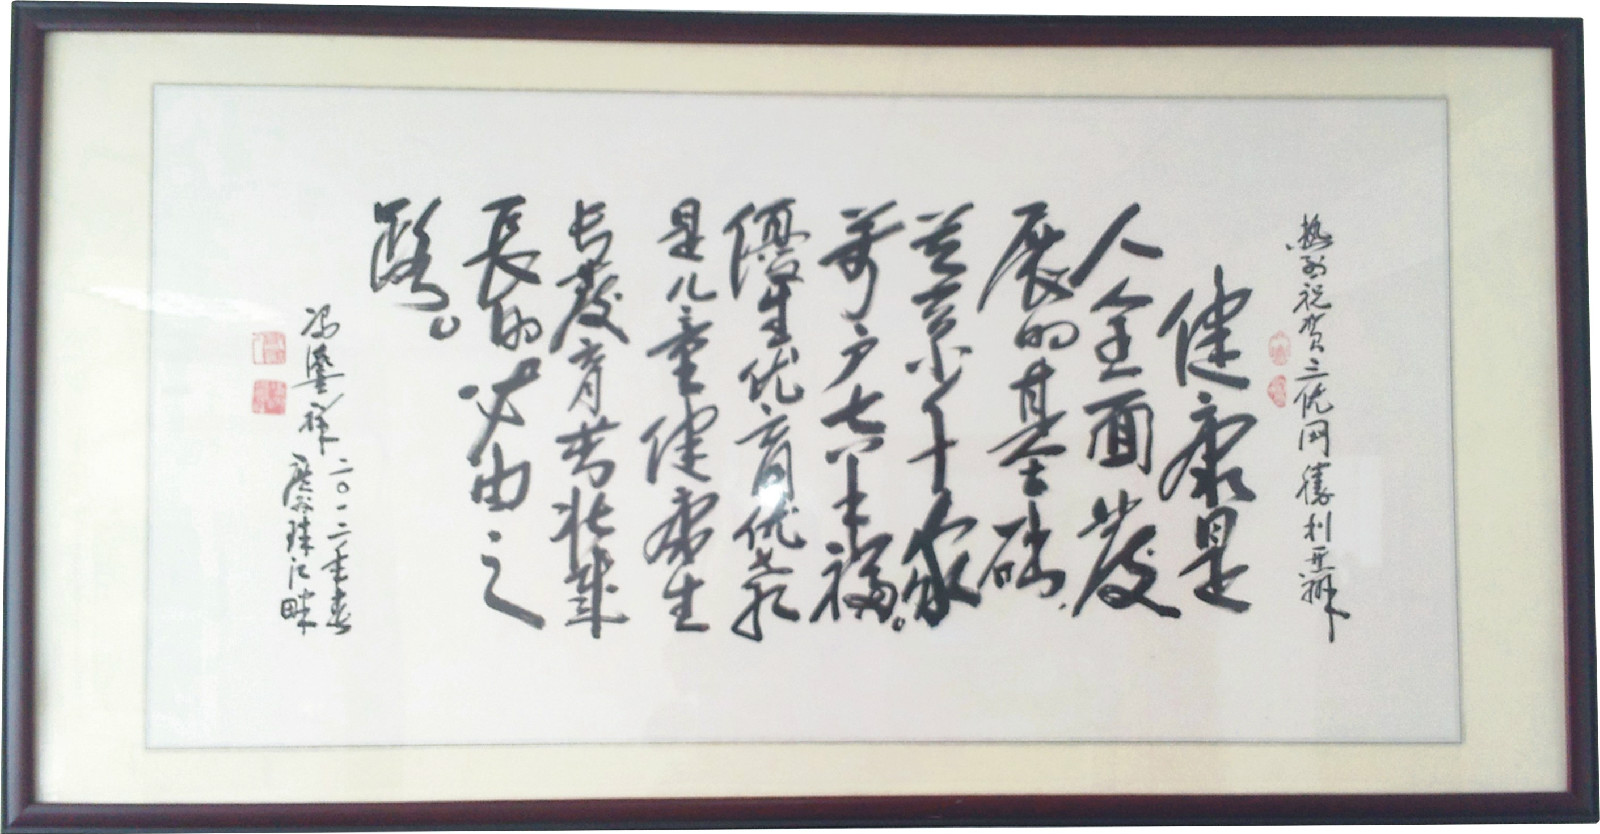 热烈祝贺三优网勝利开辦
健康是
人全面發
展的基础,
关系千家
萬户幸福。
優生优育优教
是儿童健康生
长發育茁壮成
長的必由之
路。
冯祥二〇一二年春
珠江畔